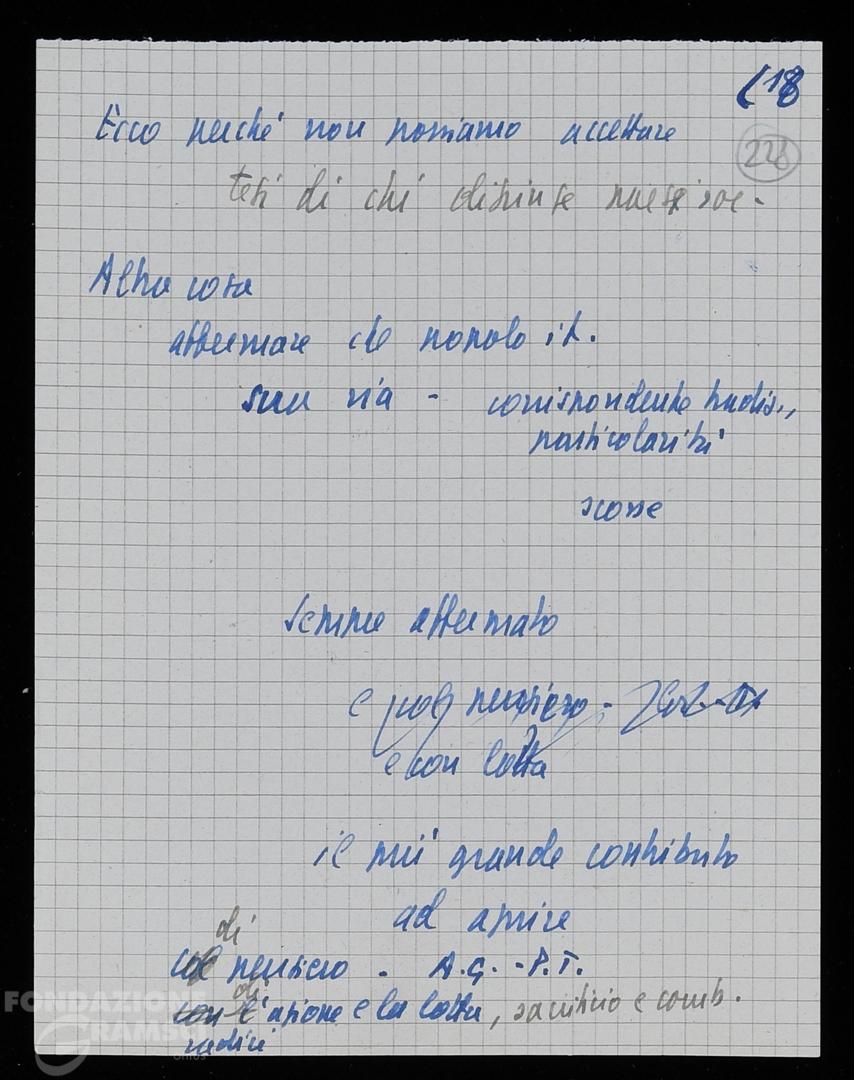 (18
228
Ecco perché non possiamo accettare
tesi di chi
Altra cosa
affermare che popolo it.
sua via - corrispondente tradiz.,
particolarità
scorse
sempre affermato
e col pensiero -
e con lotta
il più grande contributo
ad aprire
di
col pensiero - A.G. - P.T.
di
con l'azione e la lotta, sacrificio e comb.
radici
FONDAZIONE
GRAMSCI
onlus